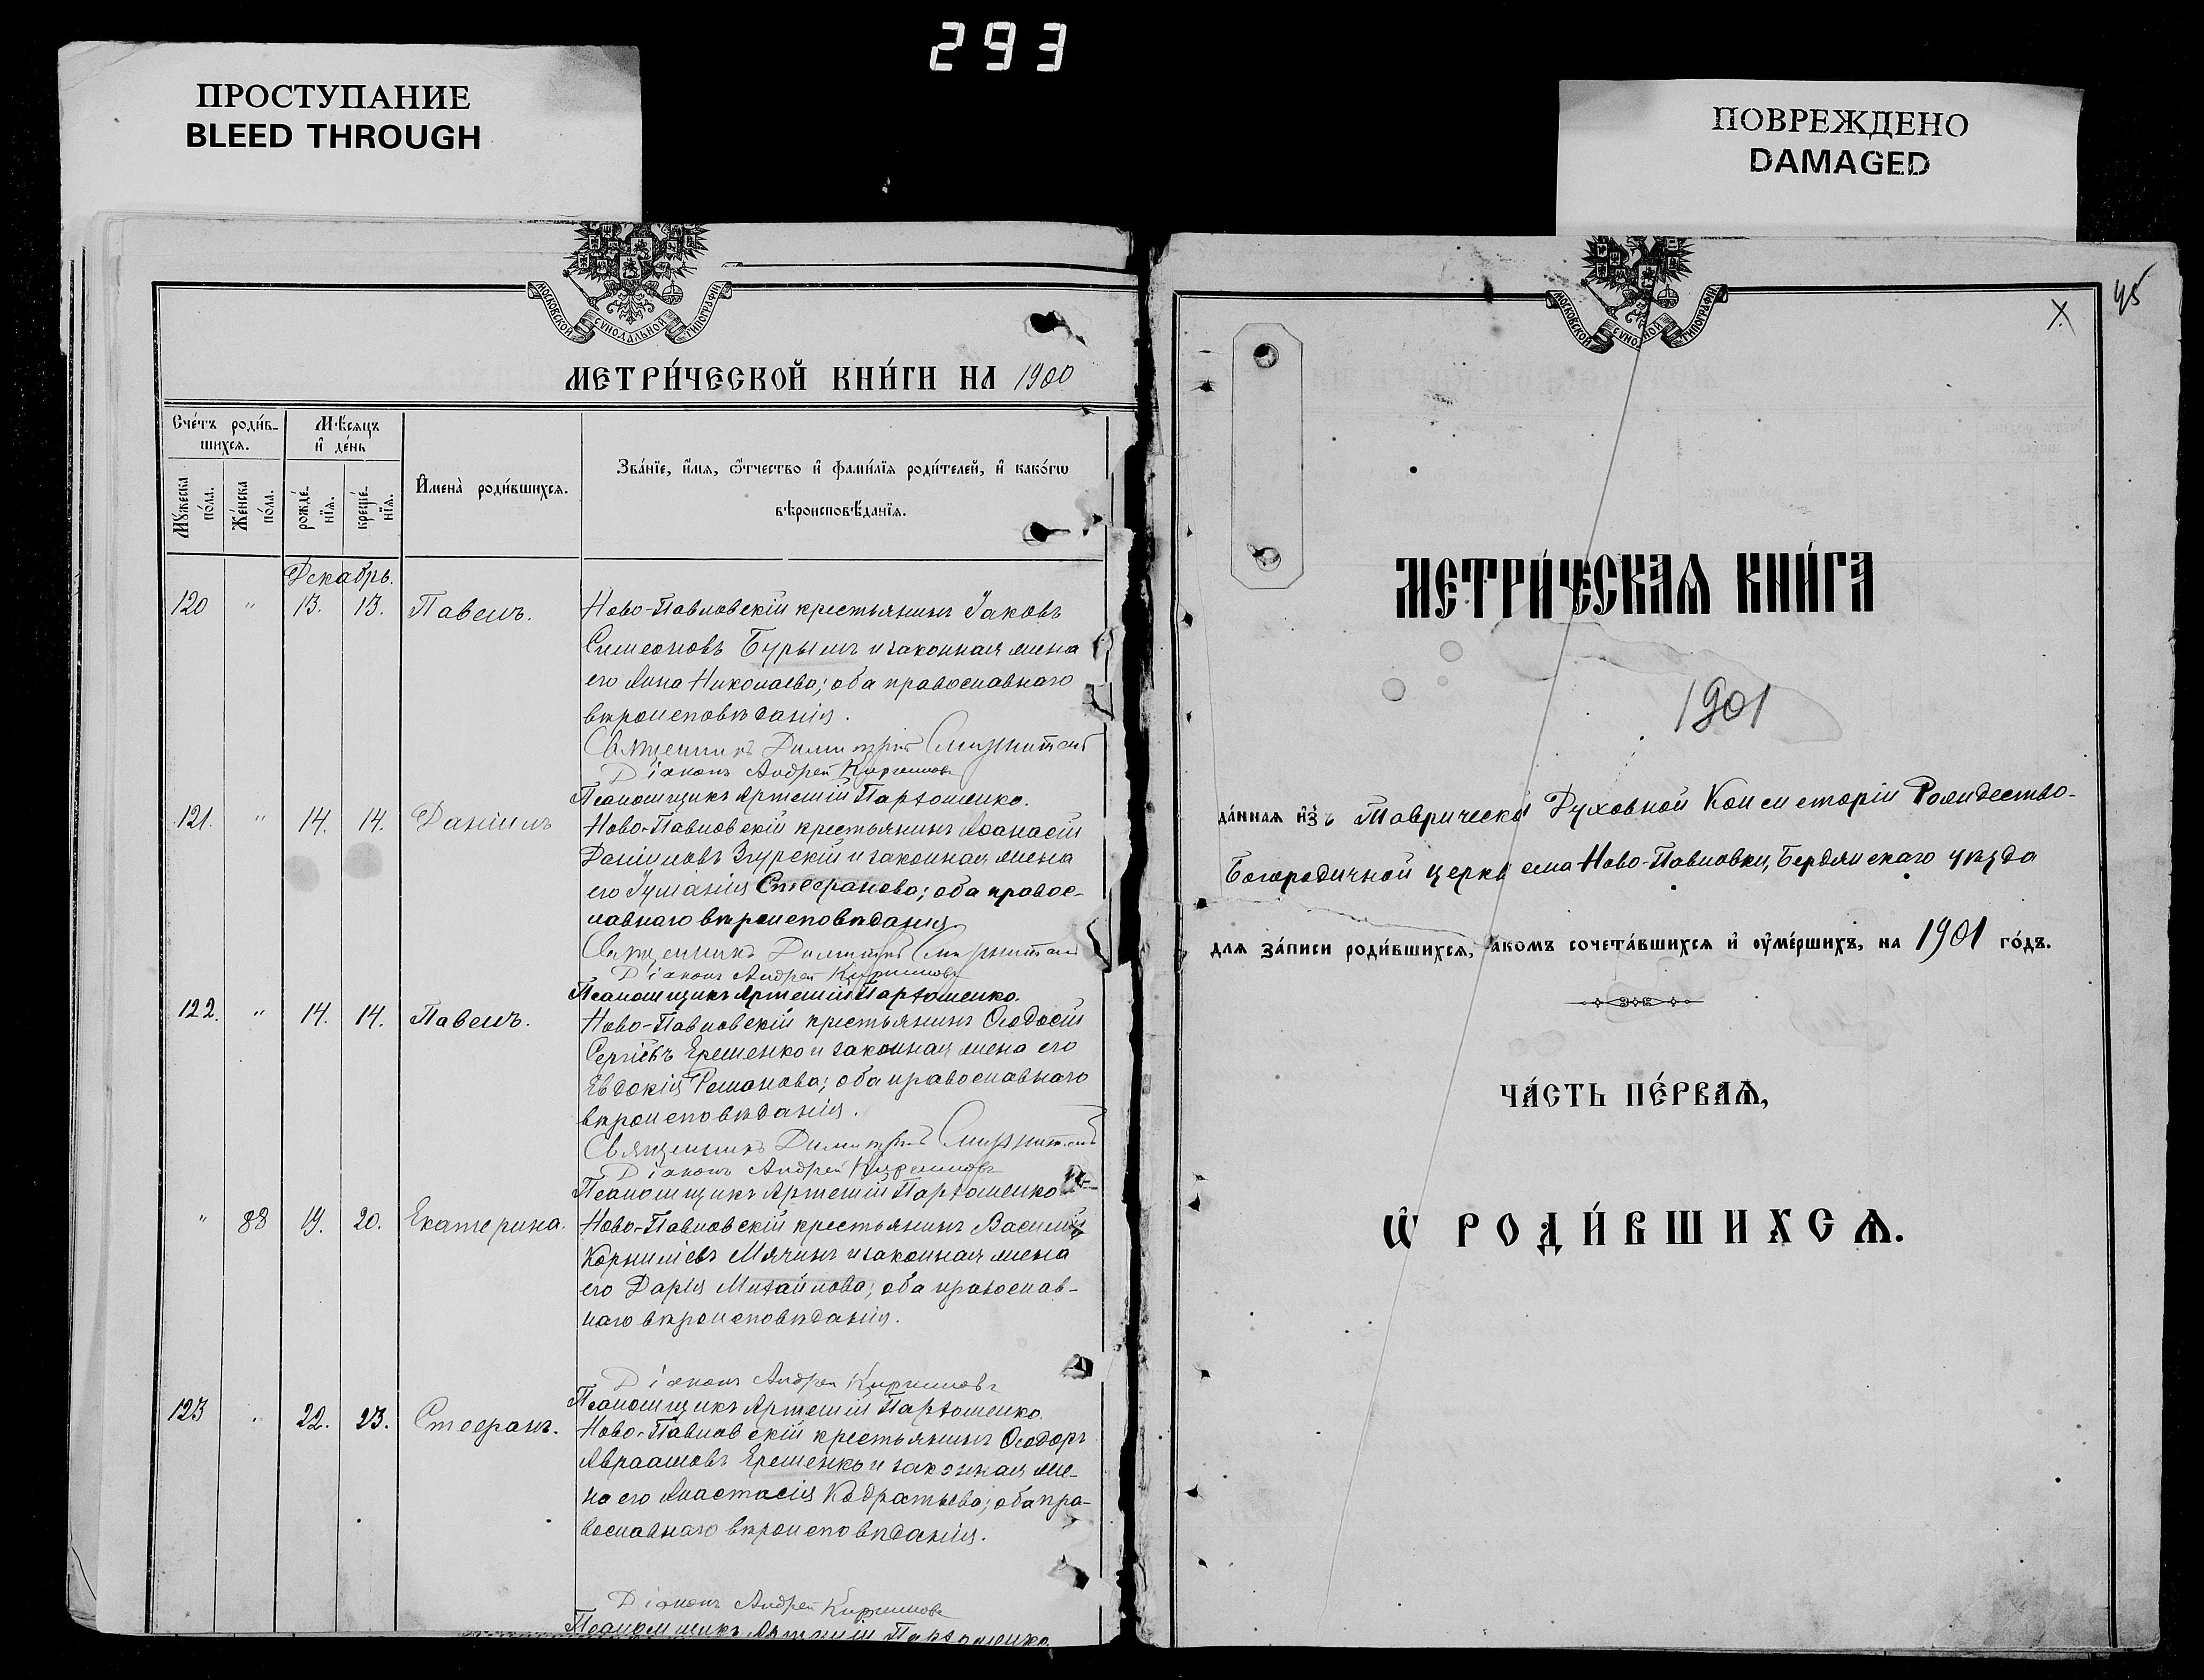 293
ПРОСТУПАНИЕ
BLEED THROUGH
ПОВРЕЖДЕНО
DAMAGED
МОСКОВСКОЙ СѴНОДАЛЬНОЙ ТИПОГРАФІИ
МЕТРИ́ЧЕСКОЙ КНИ́ГИ НА 1900
Сче́тъ роди́в-
шихсѧ.
Мѣ́сѧцъ
и҆ де́нь
И҆мена̀ роди́вшихсѧ.
Зва́нїе, и҆́мѧ, ѻ҆́тчество и҆ фами́лїѧ роди́телей, и҆ како́гѡ
вѣроисповѣ́данїѧ.
Мꙋ́жеска
по́ла.
Же́нска
по́ла.
рожде́-
нїѧ.
креще́-
нїѧ.
Декабрь.
120 " 13. 13. Павелъ. Ново-Павловскій крестьянинъ Іаковъ
Симеоновъ Бурымъ и законная жена
его Анна Николаева; оба православнаго
вѣроисповѣданія.
Священникъ Димитрій
Діаконъ Андрей Кирилловъ
Псаломщикъ Артемій Пархоменко.
121. " 14. 14. Даніилъ Ново-Павловскій крестьянинъ Аѳанасій
Даніиловъ Згурскій и законная жена
его Іуліанія Стефанова; оба правос-
лавнаго вѣроисповѣданія
Священникъ Димитрій
Діаконъ Андрей Кирилловъ
Псаломщикъ Артемій Пархоменко.
122. " 14. 14. Павелъ. Ново-Павловскій крестьянинъ Ѳеодосій
Сергіевъ Еременко и законная жена его
Евдокія Романова; оба православнаго
вѣроисповѣданія.
Священникъ Димитрій
Діаконъ Андрей Кирилловъ
Псаломщикъ Артемій Пархоменко
" 88 19. 20. Екатерина. Ново-Павловскій крестьянинъ Василій
Корниліевъ Мячинъ и законная жена
его Дарія Михайлова; оба православ-
наго вѣроисповѣданія.
Діаконъ Андрей Кирилловъ
Псаломщикъ Артемій Пархоменко.
123 " 22. 23. Стефанъ. Ново-Павловскій крестьянинъ Ѳеодоръ
Авраамовъ Еременко и законная же-
на его Анастасія Кодратьева; оба пра-
вославнаго вѣроисповѣданія.
Діаконъ Андрей Кирилловъ
Псаломщикъ Артемій Пархоменко
МОСКОВСКОЙ СѴНОДАЛЬНОЙ ТИПОГРАФІИ
X
45
МЕТРИ́ЧЕСКАѦ КНИ́ГА
1901
да́ннаѧ и҆зъ Таврической Духовной Консисторіи Рождество-
Богородичной церкв села Ново-Павловки, Бердянскаго уѣзда
для за́писи роди́вшихсѧ, акомъ сочета́вшихсѧ и҆ оу҆ме́ршихъ, на 1901 го́дъ.
ЧА́СТЬ ПЕ́РВАѦ,
Ѡ҆ РОДИ́ВШИХСѦ.